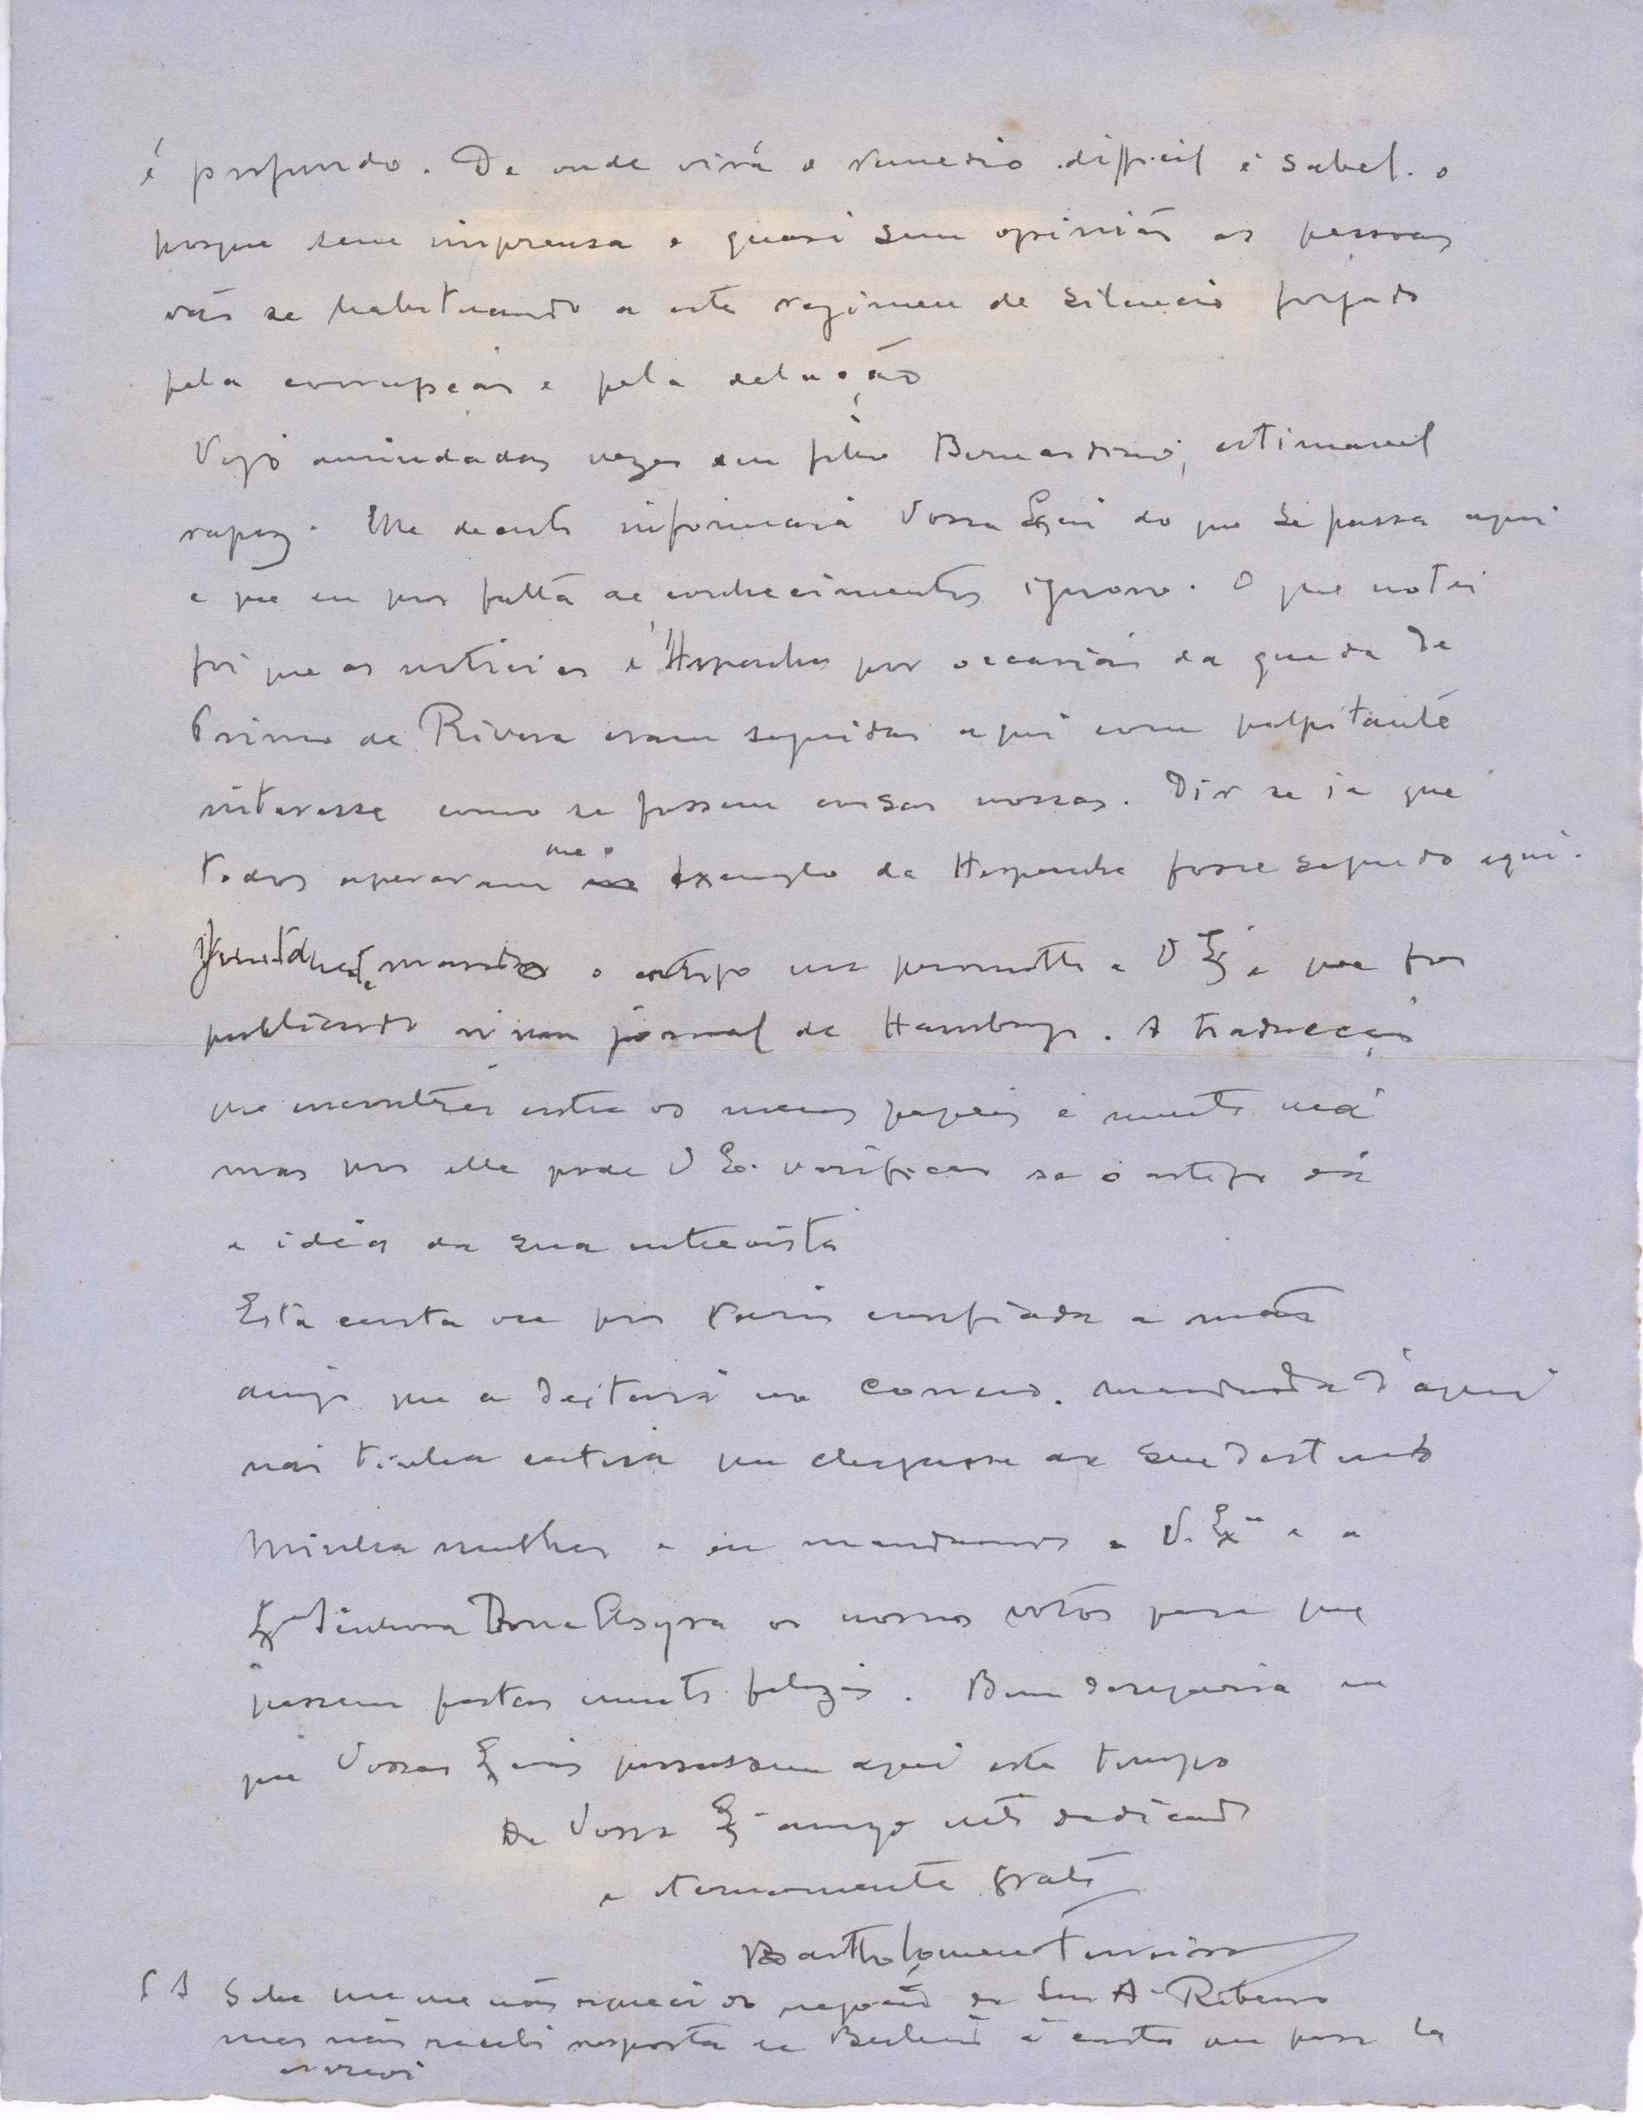 é profundo. De onde virá o remedio difficil é sabel-o
porque sem imprensa e quasi sem opinião as pessoas
vão se habituando a este regimen de silencio forjado
pela corrupção e pela delação
Vejo amiudadas vezes seu filho Bernardino, estimavel
rapaz. Elle decerto informará Vossa Excia do que se passa aqui
e que eu por falta de conhecimentos ignoro. O que notei
foi que as noticias d'Hespanha por occasião da queda de
Primo de Rivera eram seguidas aqui com palpitante
interesse como se fossem cousas nossas. Dir se ia que
todos esperavam que o exemplo da Hespanha fosse seguido aqui.
mando o artigo que prometti a V Exª e que foi
publicado n'um jornal de Hamburgo. A traducção
que encontrei entre os meus papeis é muito má
mas por ella pode V Ex. verificar se o artigo dá
a idéa da sua entrevista
Esta carta vae por confiada a mão
amiga que a deitará no correio. mandada d'aqui
não tinha certeza que chegasse ao seu destino
Minha mulher e eu mandamos a V. Exª e a
Exª Senhora Dona Elzyra os nossos votos para que
passem festas muito felizes. Bem desejaria eu
que Vossas Excias passassem aqui este tempo
De Vossa Exª amigo mto dedicado
e eternamente grato
Bartholomeu Ferreira
P S Sabe que me não esqueci do negocio do Snr A. Ribeiro
mas não recebi resposta de Berlim á carta que para la
escrevi